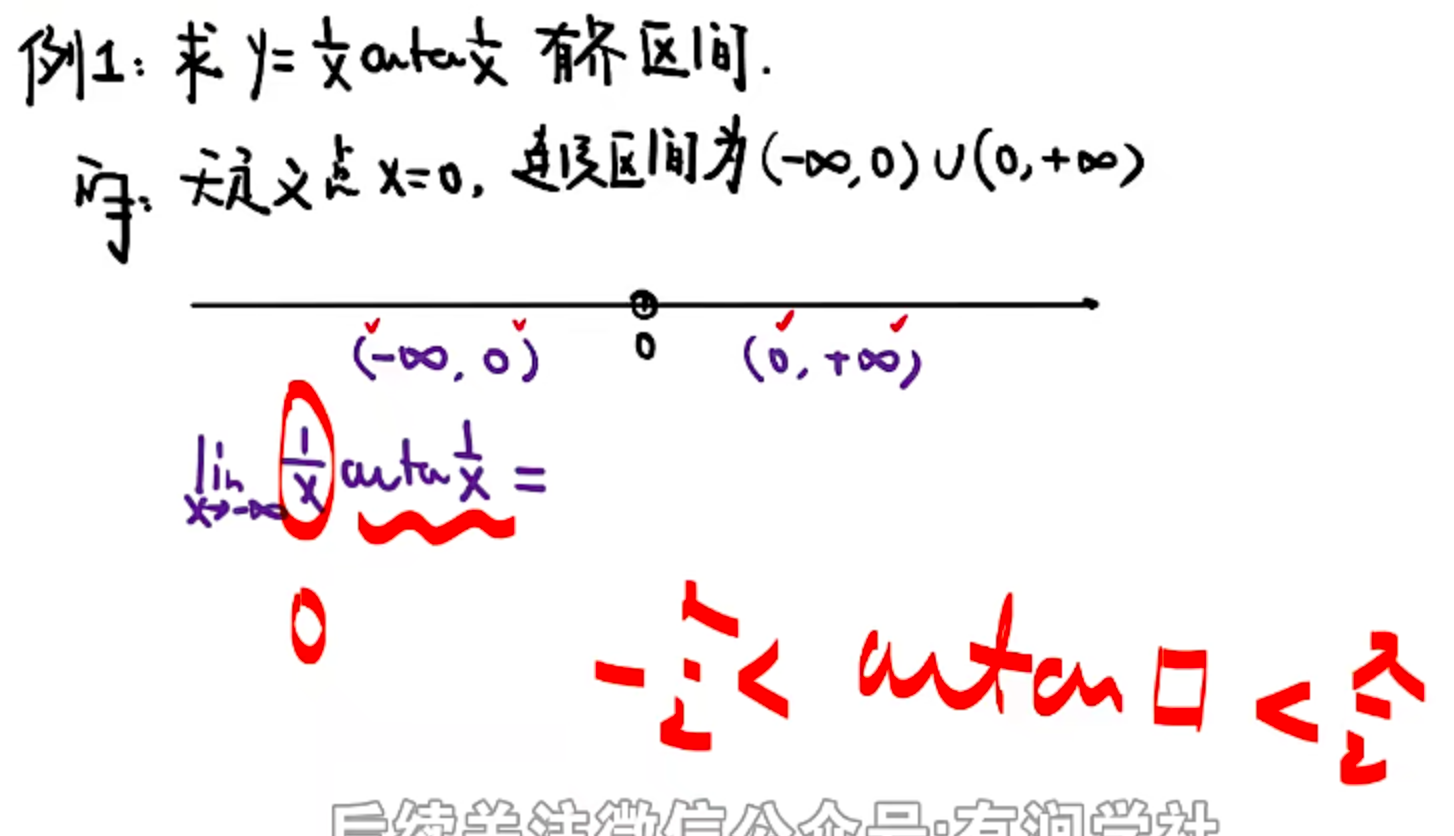 例1: 求 y= 1/x arctan 1/x 有界区间.
解: 无定义点 x=0, 连续区间为(-∞,0)∪(0,+∞)
0
(-∞, 0) (0, +∞)
lim x→-∞ 1/x arctan 1/x =
0
-π/2 < arctan □ < π/2
后续关注微信公众号:有润学社